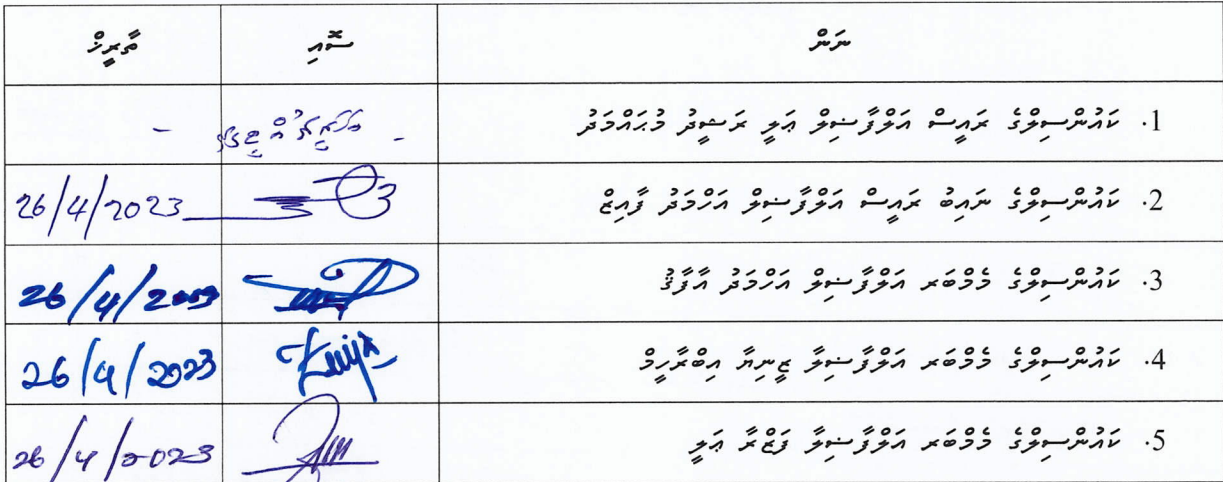 ނަން ސޮއި ތާރީޚް
1. ކައުންސިލްގެ ރައީސް އަލްފާޟިލް ޢަލީ ރަޝީދު މުޙައްމަދު - -
2. ކައުންސިލްގެ ނައިބު ރައީސް އަލްފާޟިލް އަޙްމަދު ފާއިޒް 26/4/2023
3. ކައުންސިލްގެ މެމްބަރ އަލްފާޟިލް އަޙްމަދު އާފާޤު 26/4/2023
4. ކައުންސިލްގެ މެމްބަރ އަލްފާޟިލާ ޒީނިޔާ އިބްރާހީމް 26/4/2023
5. ކައުންސިލްގެ މެމްބަރ އަލްފާޟިލާ ފަޒްރާ ޢަލީ 26/4/2023